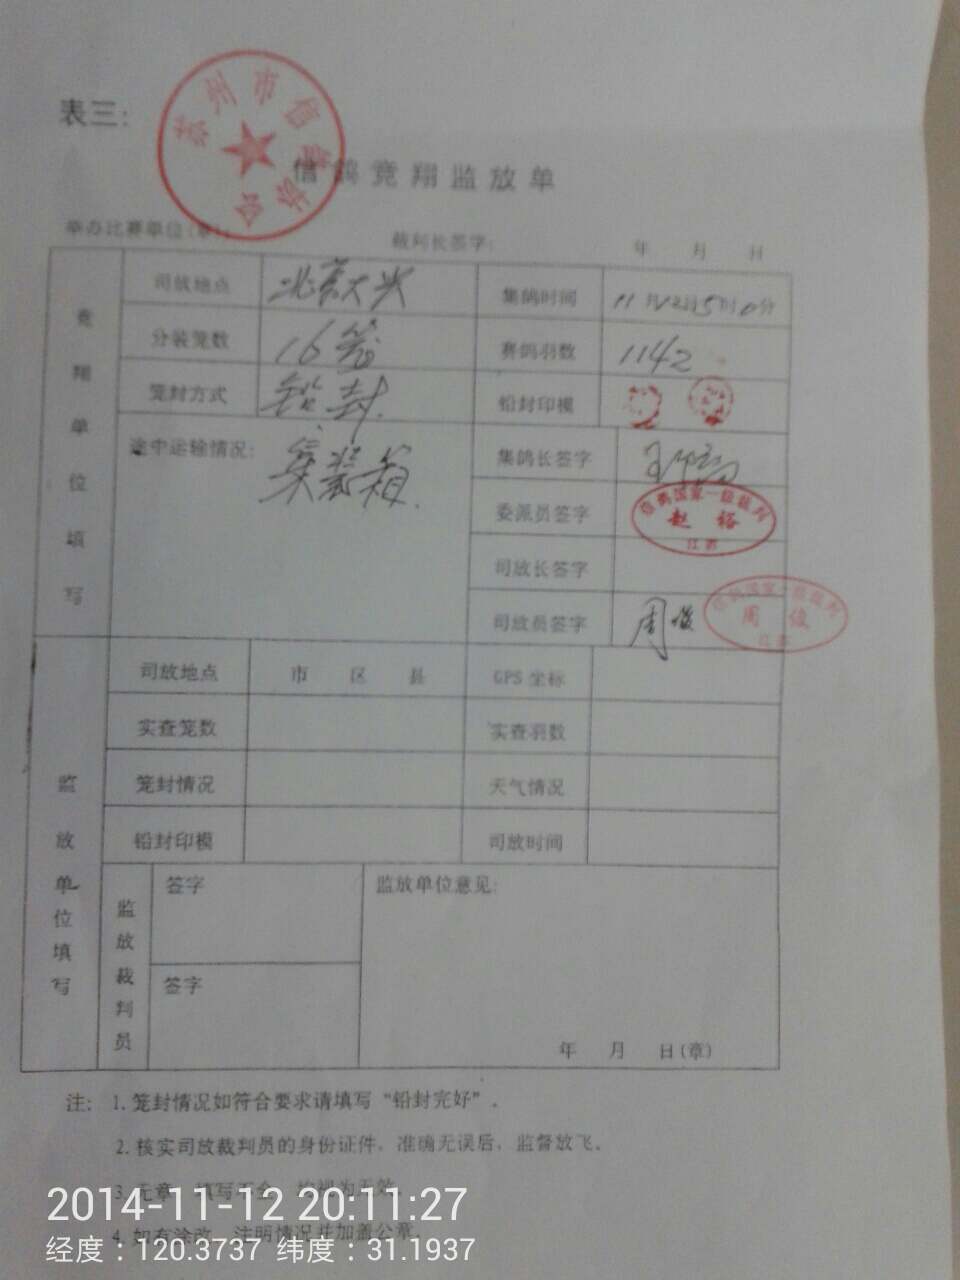 表三:
苏州市信鸽协会
信鸽竞翔监放单
举办比赛单位(章):
裁判长签字: 年 月 日
竞翔单位填写
司放地点 北京大兴 集鸽时间
分装笼数 16笼 赛鸽羽数 1142
笼封方式 铅封. 铅封印模
途中运输情况: 集装箱. 集鸽长签字
委派员签字 信鸽国家一级裁判 赵裕 江苏
司放长签字
司放员签字 周俊 信鸽国家一级裁判 周俊 江苏
监放单位填写
司放地点 市 区 县 GPS坐标
实查笼数 实查羽数
笼封情况 天气情况
铅封印模 司放时间
监放裁判员
签字 监放单位意见:
签字
年 月 日(章)
注: 1.笼封情况如符合要求请填写“铅封完好”.
2.核实司放裁判员的身份证件,准确无误后,监督放飞。
3.无章、填写不全、均视为无效。
2014-11-12 20:11:27
4.如有涂改、注明情况并加盖公章.
经度:120.3737 纬度:31.1937